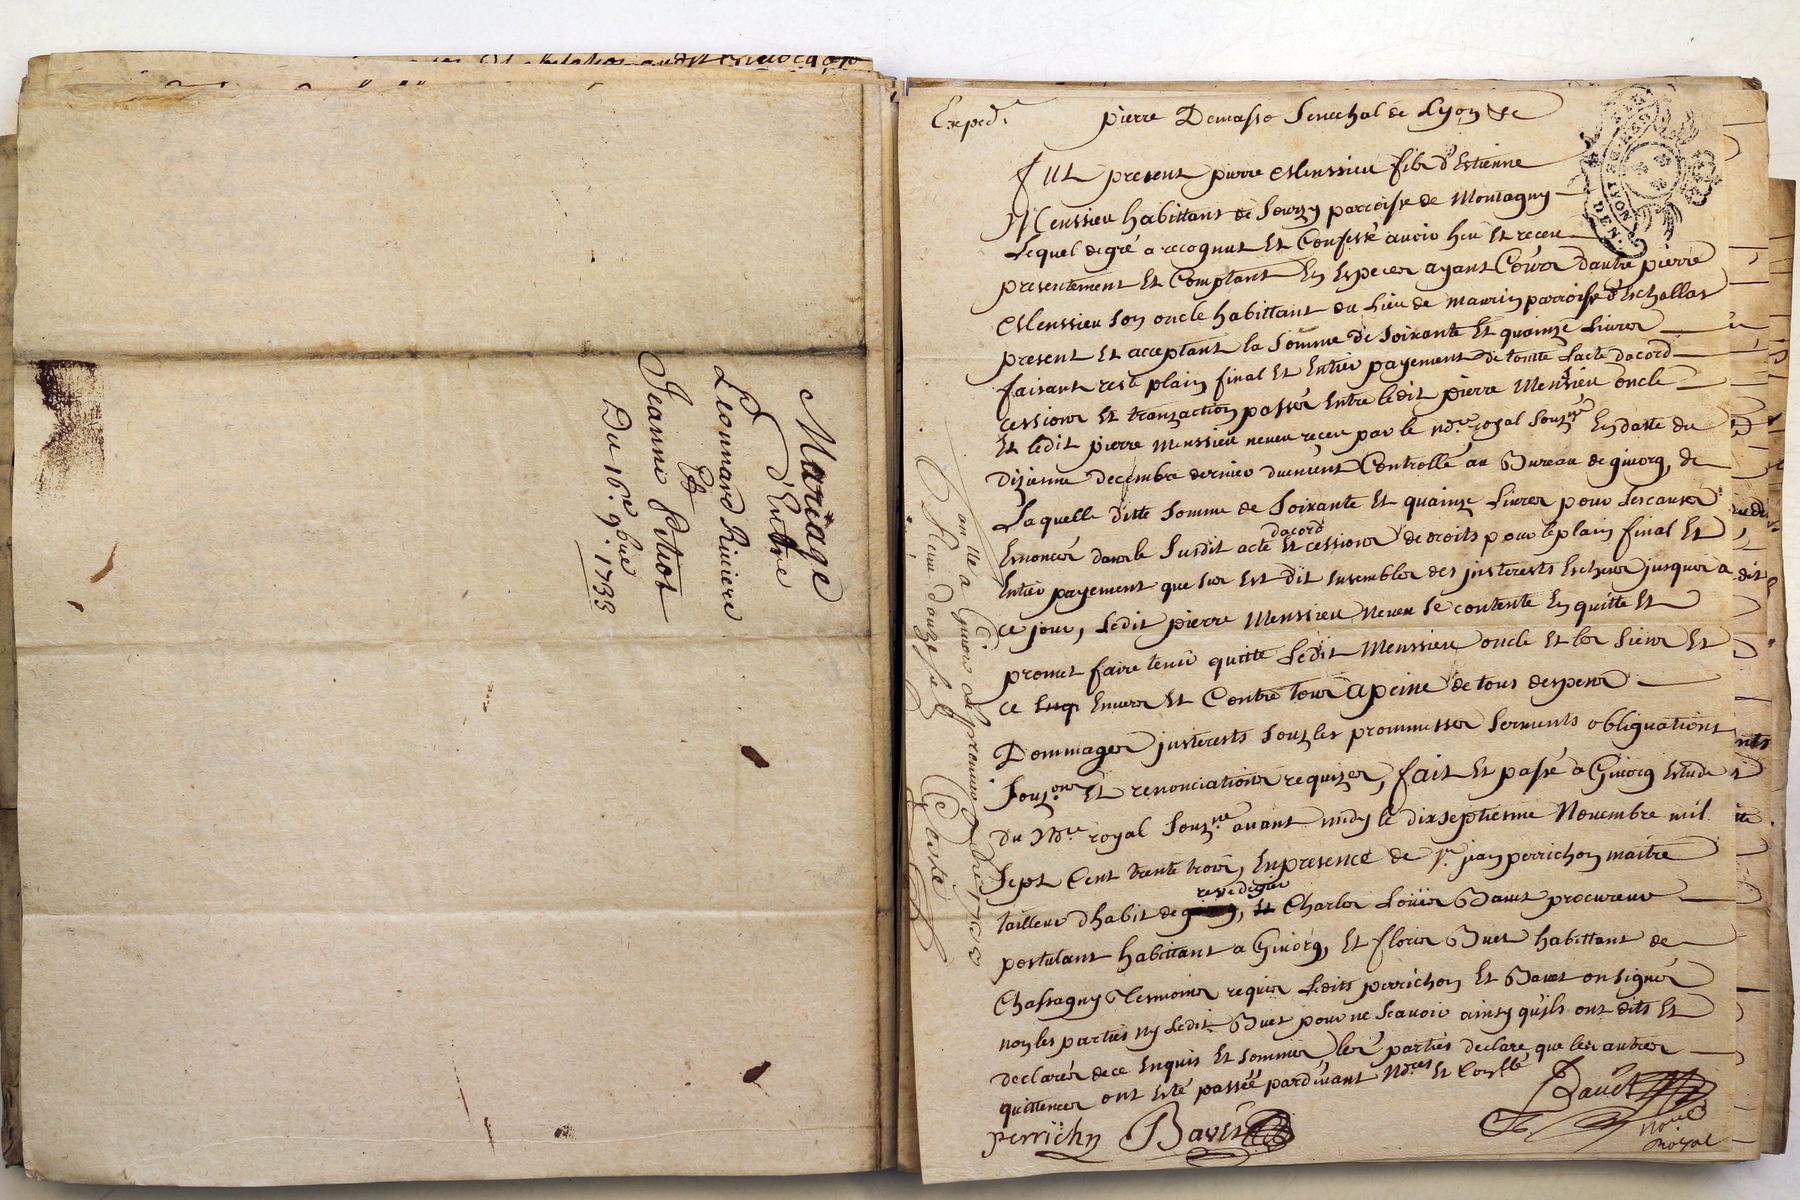 Mariage
D'Entre
Leonnard Riviere
Et
Jeanne Pitiot
Du 16e 9bre 1733
Exped.
pierre Demasso Senechal de Lyon &c
LYON
DEN.
Fut present pierre Meussieu fils d'Estienne
Meussieu habittant de Sourzy parroisse de Montagny
Lequel degré a recognut Et Confessé avoir heu Et receu
presentement Et Comptant En Especes ayant Cours dautre pierre
Meussieu son oncle habittant du Lieu de maurin parroisse d'Eschallas
present Et acceptant la Somme de Soixante Et quainze Livres
faisant reste plain final Et Entier payement de toutte Lacte dacord
cessions Et transaction passés Entre ledit pierre Meussieu oncle
Et ledit pierre Meussieu neveu receu par le nore royal souzne En datte du
dizienne decembre dernier duement Controllé au Bureau de givors, de
Laquelle ditte Somme de Soixante Et quainze Livres pour Les causes
Enoncés dans le Susdit acte dacord Et cessions de droits pour le plain final Et
Entier payement que sus Est dit Ensembles des justerests Escheus jusques a
ce jour, Ledit pierre Meussieu Neveu se contente En quitte Et
promet faire tenir quitte Ledit Meussieu oncle Et les Siens Et
ce Envers Et Contre tous a peine de tous despens
Dommages justerests souz les prommesses serments obliguations
Et renonciations requizes, fait Et passé a Givors Estude
du Nore royal souzne avant midy le dixseptienne Novembre mil
Sept Cent trente trois, En presence de Sr jean perrichon maitre
tailleur dhabit de, Charles Loüis Bavet procureur
postulant habittant a Givors, Et flory Buet habittant de
Chassagny tesmoins requis Ledits perrichon Et Bavet on signés
non les parties ny Ledit Buet pour ne scavoir ainsy qu'ils ont dits Et
declarés de ce Enquis Et sommés, les parties declare que les autres
quittences ont Esté passée pardevant Nores Et
perrichon Bavet
Nore
Royal